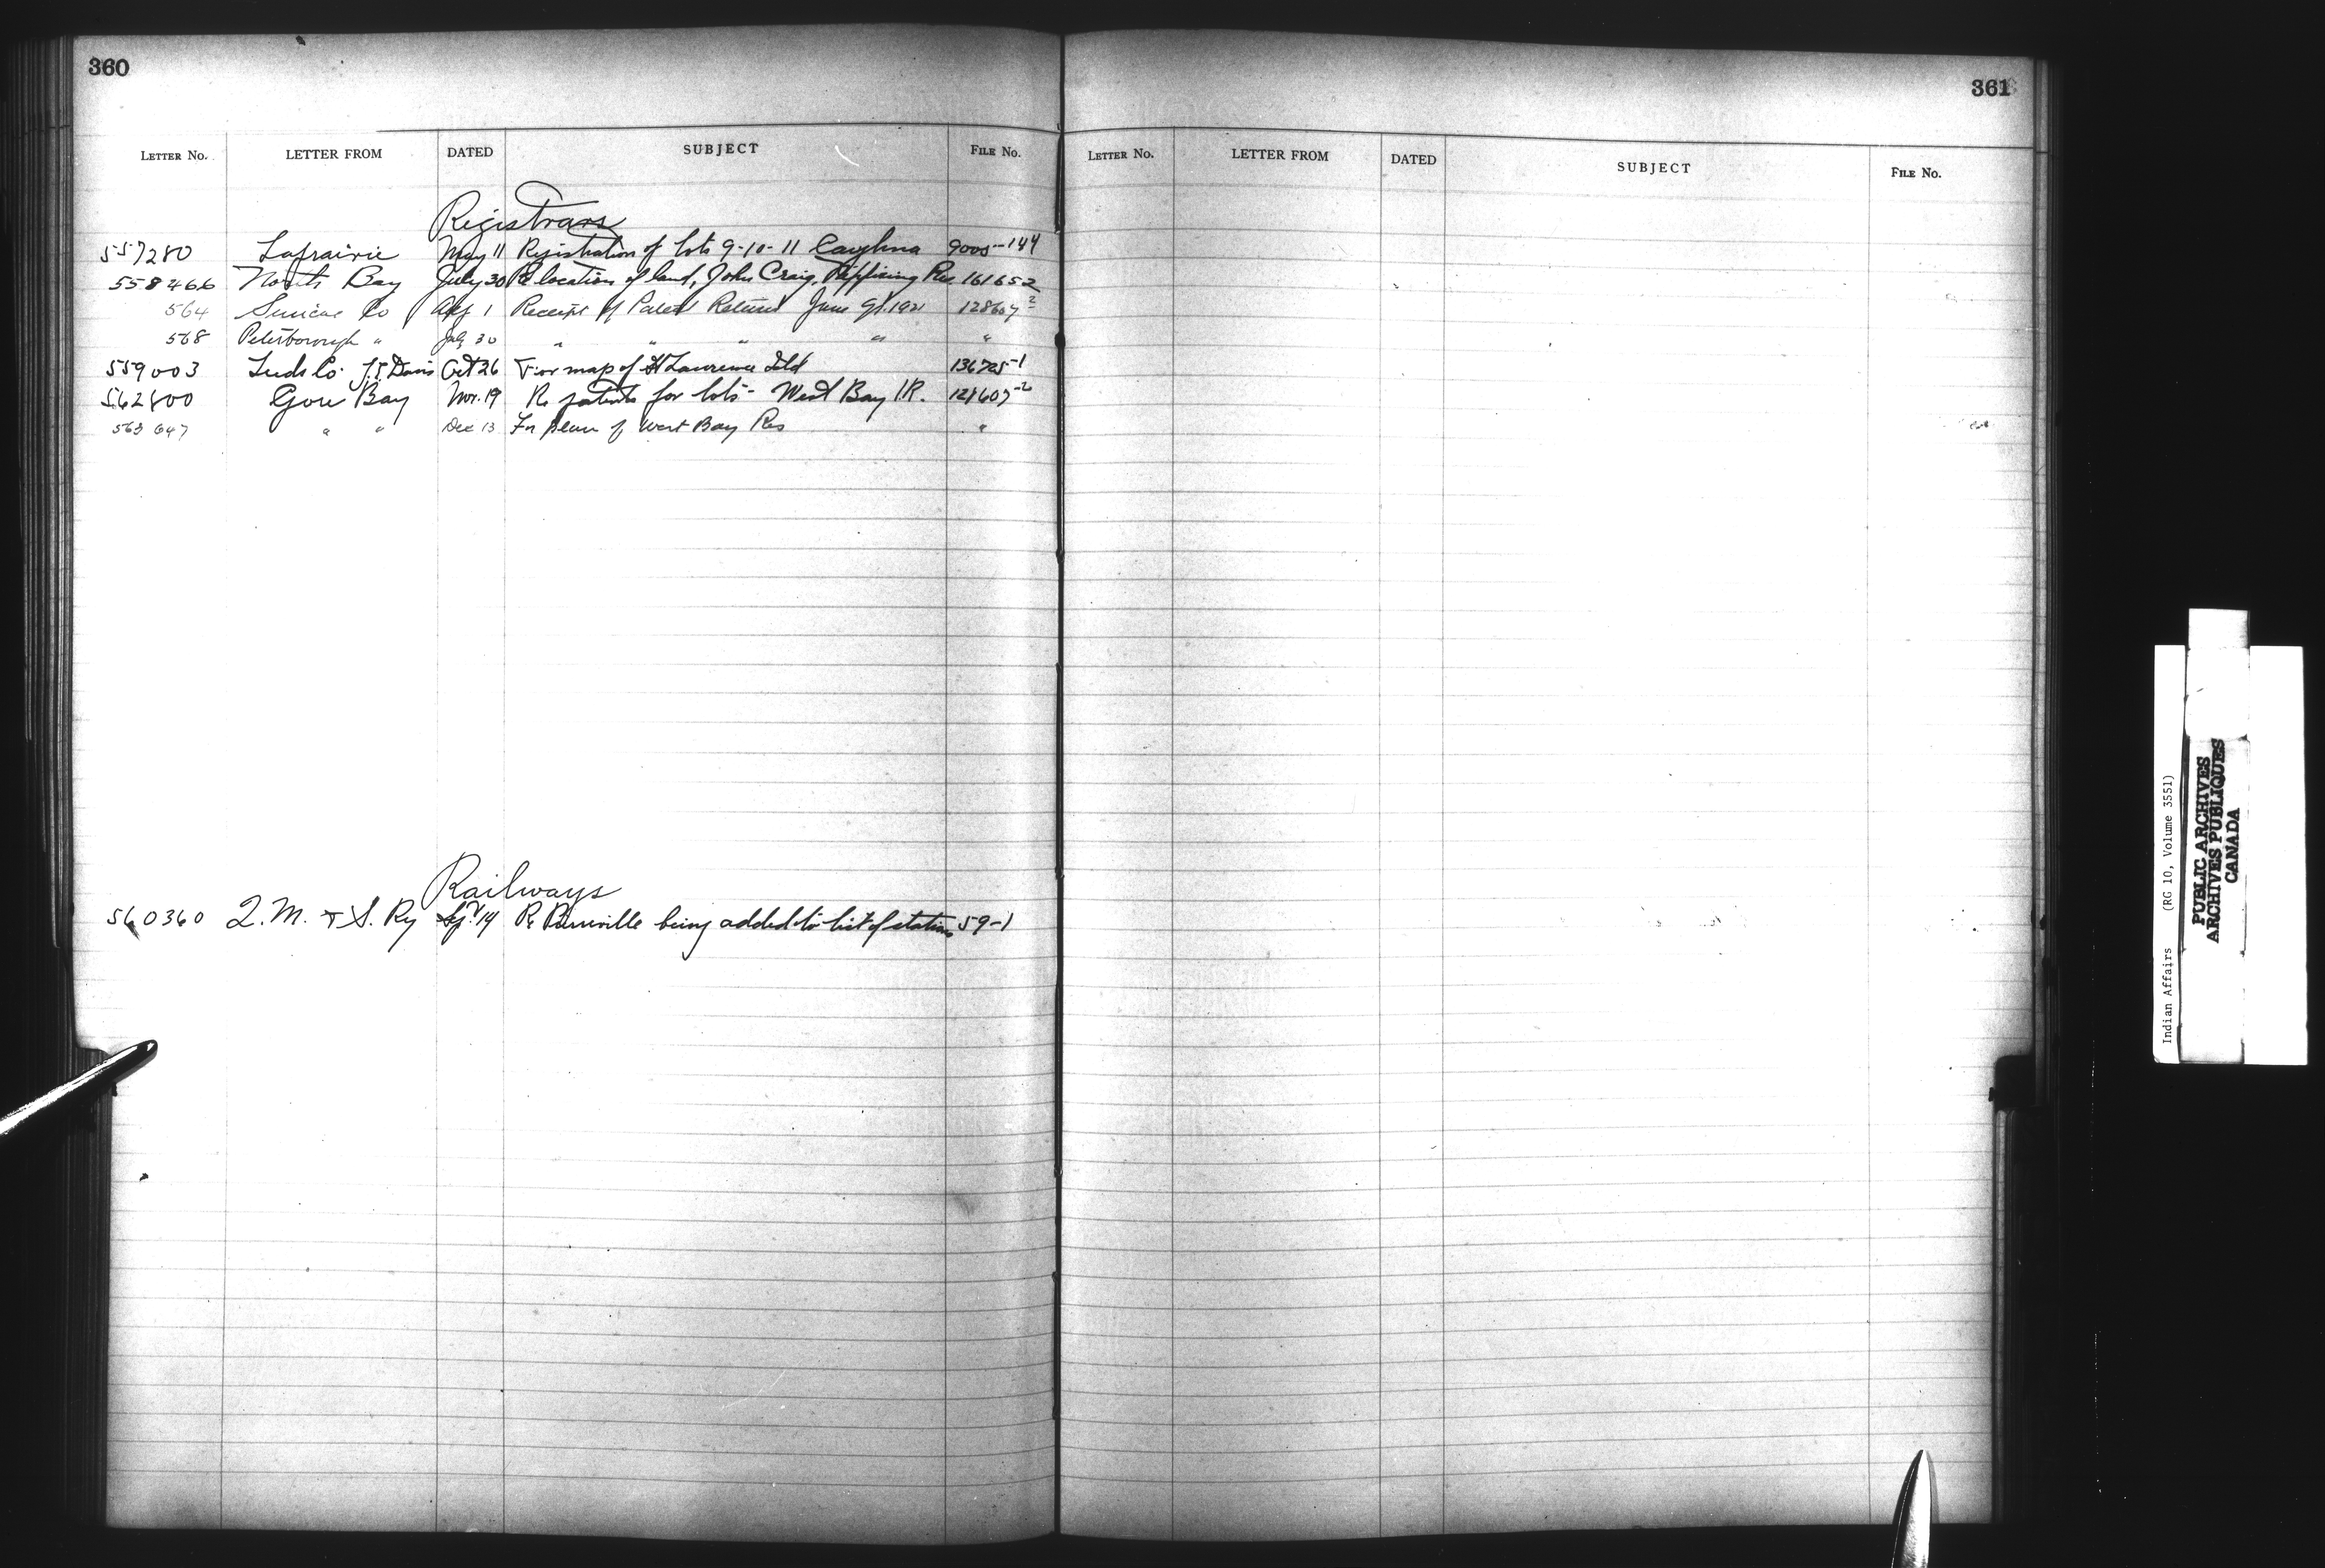 360
LETTER No. LETTER FROM DATED SUBJECT FILE No.
Registrars
557280 Laprairie May 11 Registration of lots 9-10-11 Caughna 9005-144
558466 North Bay July 30 Re location of land, John Craig, Nipissing Res. 161652
564 Simcoe Co Aug 1 Receipt of Patent Return June qr. 1921 128607-2
568 Peterborough " July 30 " " " " "
559003 Leeds Co. Oct 26 For map of St Lawrence Isld 136725-1
562800 Gore Bay Nov. 19 Re patents for lots - West Bay I.R. 128607-2
563647 " " Dec 13 For plan of West Bay Res "
Railways
560360 Q.M. & S. Ry Sep. 14 Re being added to list of stations 59-1
361
LETTER No. LETTER FROM DATED SUBJECT FILE No.
Indian Affairs (RG 10, Volume 3551)
PUBLIC ARCHIVES
ARCHIVES PUBLIQUES
CANADA